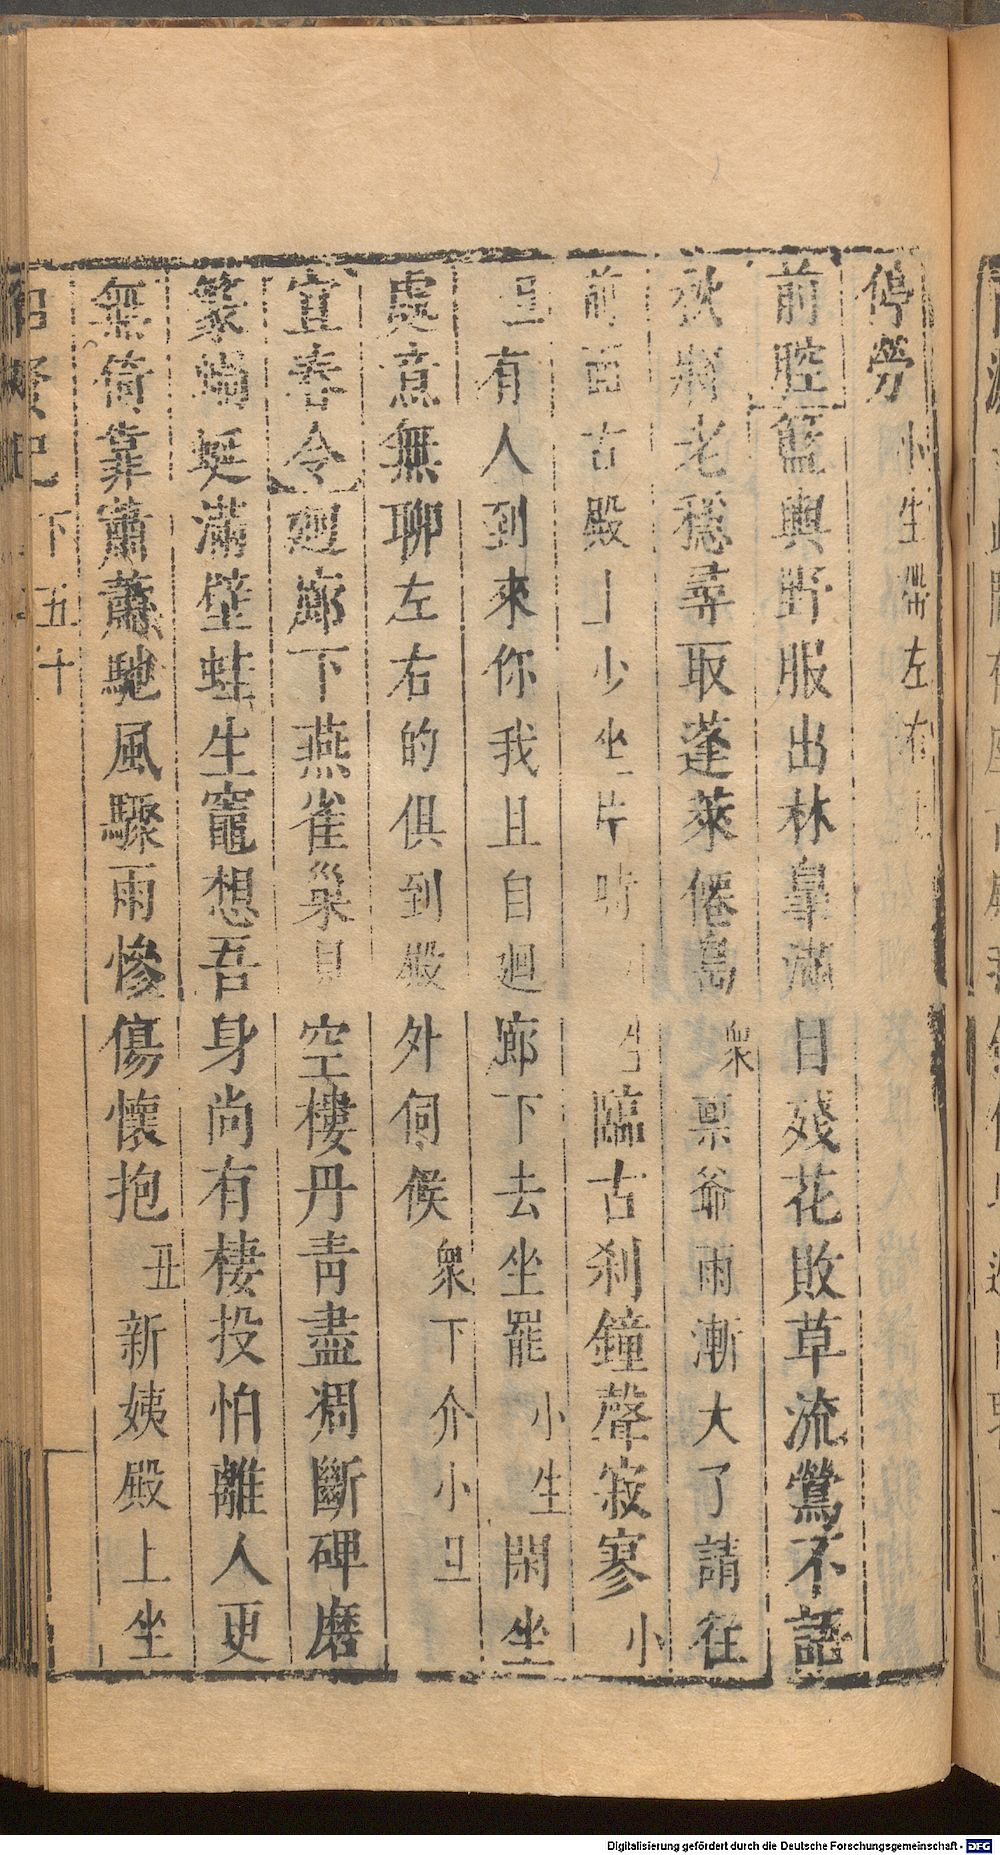 停勞小生帶左右上
前腔籃輿野服出林皐滿目殘花敗草流鶯不語
秋澗老穩尋取蓬萊僊島衆稟爺雨漸大了請往
前面古殿上少坐片時小生臨古刹鐘聲寂寥小
旦有人到來你我且自迴廊下去坐罷小生閑坐
處意無聊左右的俱到殿外伺候衆下介小旦
宜春令迴廊下燕雀巢見空樓丹青盡凋斷碑磨
篆蝸蜓滿壁蛙生竈想吾身尚有棲投怕離人更
無倚靠蕭蕭馳風驟雨慘傷懷抱丑新姨殿上坐
賢記下五十
Digitalisierung gefördert durch die Deutsche Forschungsgemeinschaft - DFG